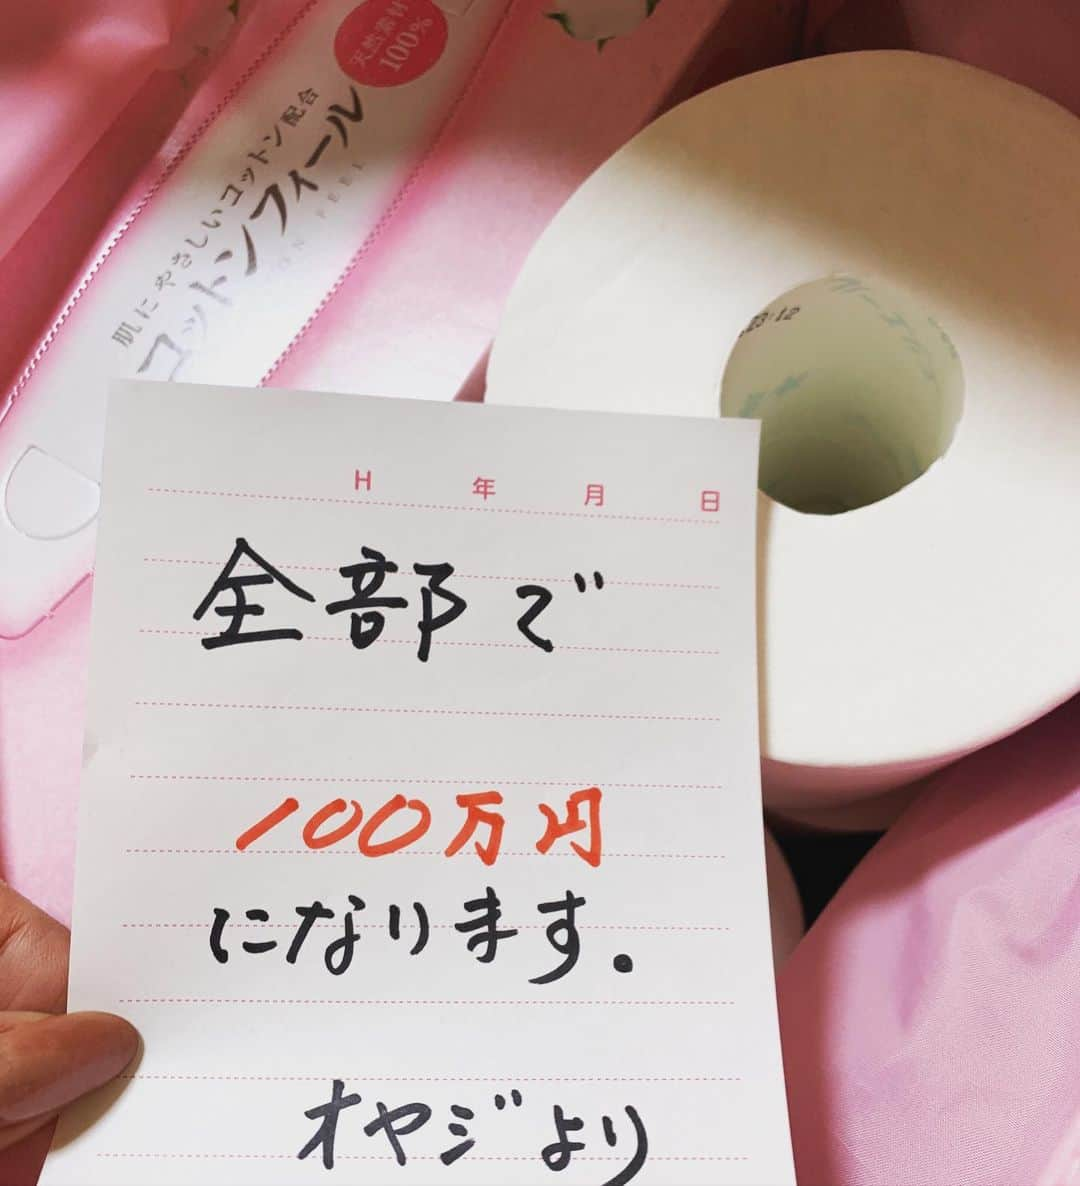 天然素材
100%
肌にやさしいコットン配合
コットンフィール
23:12
H 年 月 日
全部で
100万円
になります.
オヤジより